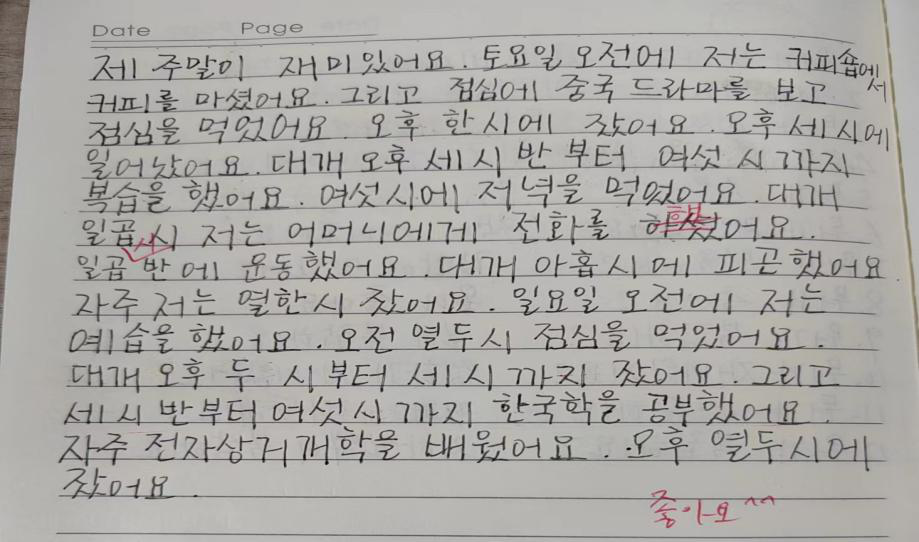 Date Page
제 주말이 재미있어요. 토요일 오전에 저는 커피숍에서
커피를 마셨어요. 그리고 점심에 중국 드라마를 보고
점심을 먹었어요. 오후 한 시에 잤어요. 오후 세 시에
일어났어요. 대개 오후 세 시 반 부터 여섯 시 까지
복습을 했어요. 여섯 시에 저녁을 먹었어요. 대개
일곱 시 저는 어머니에게 전화를 했어요.
일곱 시 반에 운동했어요. 대개 아홉시에 피곤했어요
자주 저는 열한 시 잤어요. 일요일 오전에 저는
예습을 했어요. 오전 열두 시 점심을 먹었어요.
대개 오후 두 시부터 세 시 까지 잤어요. 그리고
세 시 반부터 여섯 시 까지 한국학을 공부했어요.
자주 전자상거개학을 배웠어요. 오후 열두 시에
잤어요.
좋아요^^